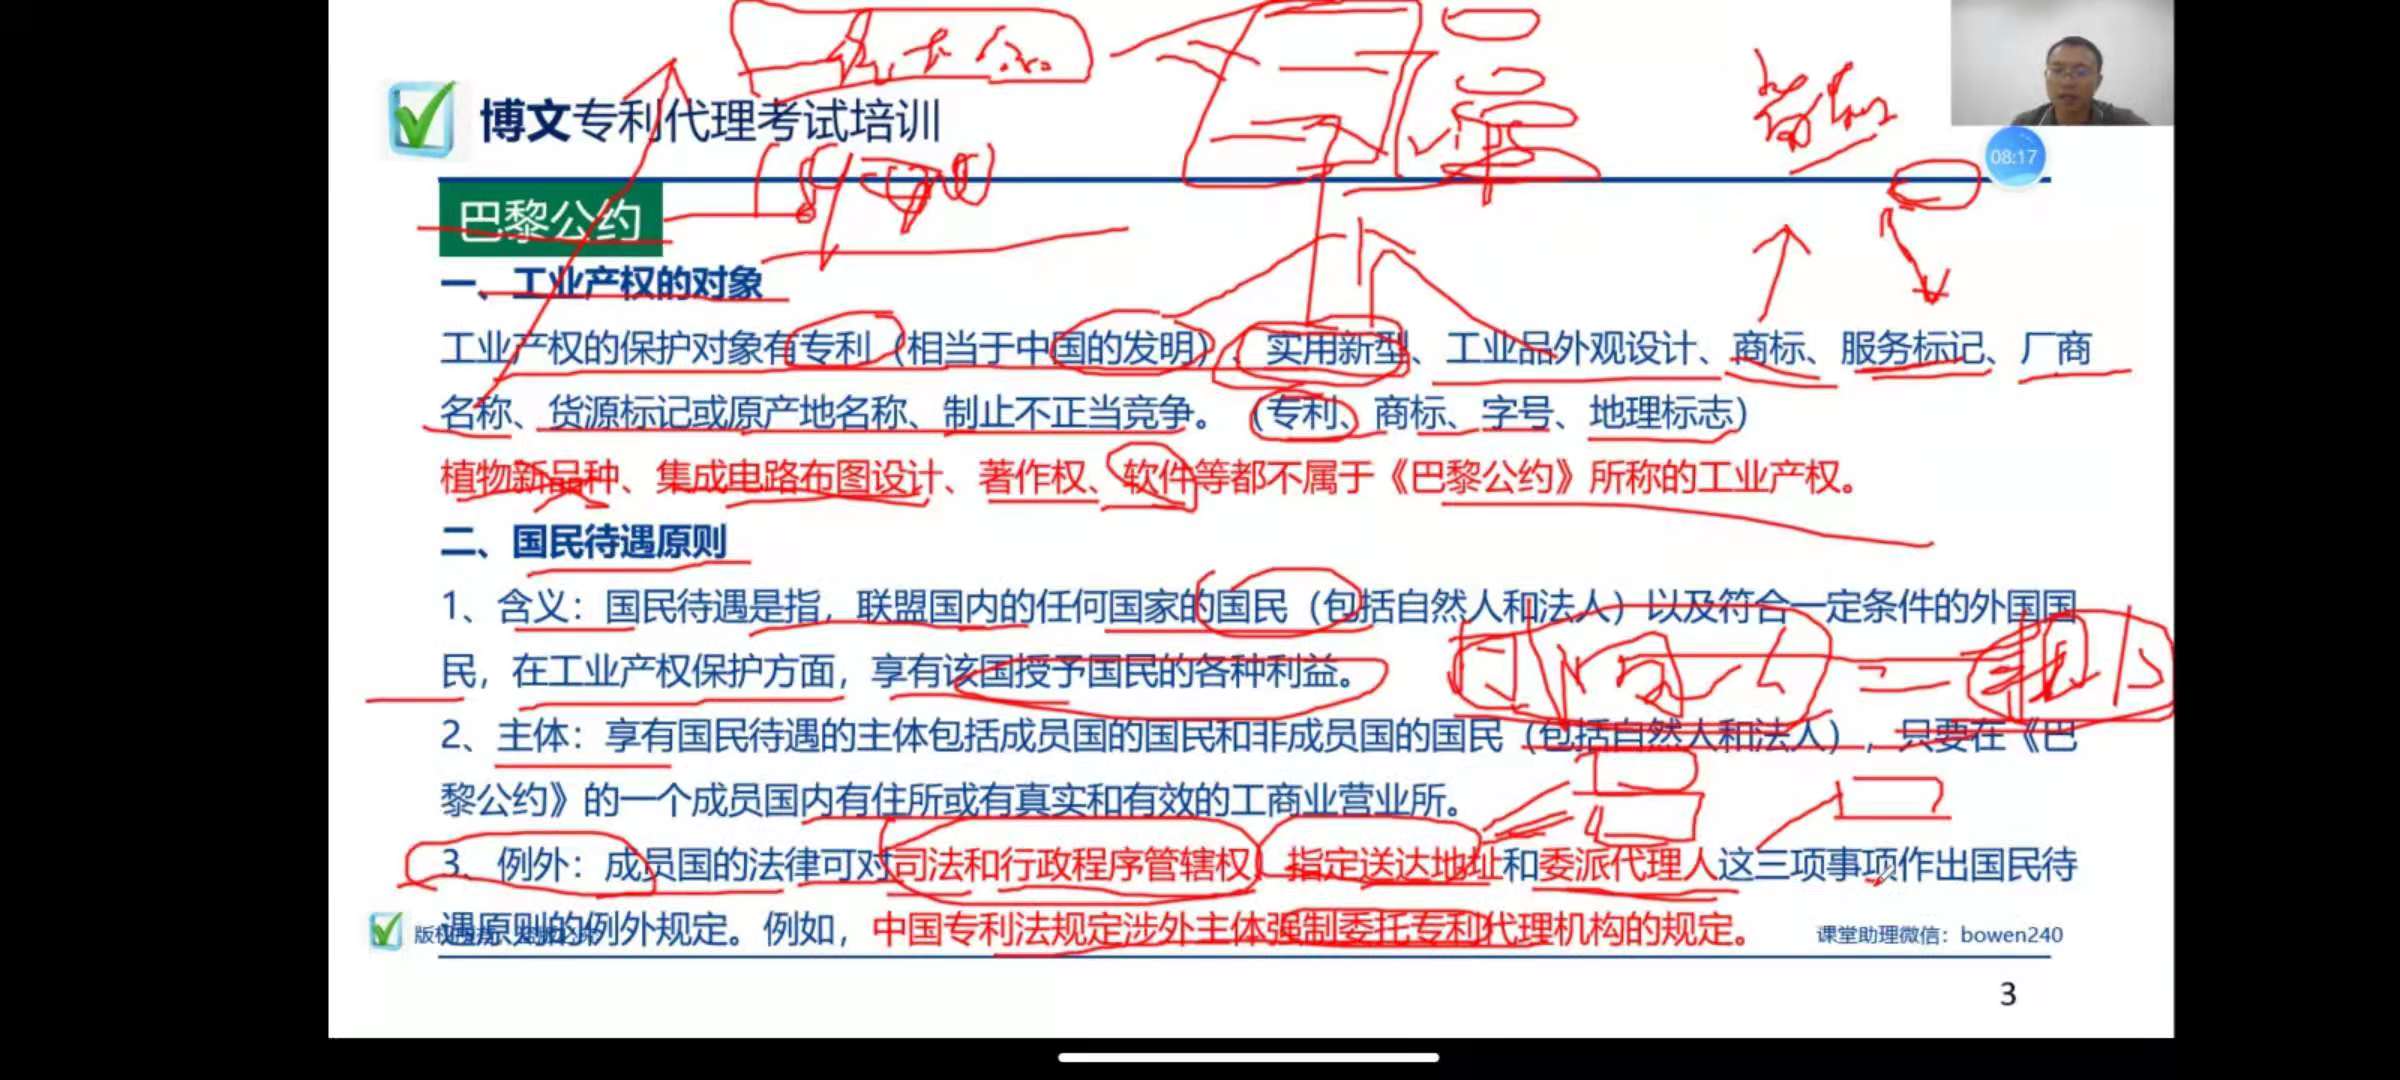 博文专利代理考试培训
08:17
巴黎公约
一、工业产权的对象
工业产权的保护对象有专利（相当于中国的发明）、实用新型、工业品外观设计、商标、服务标记、厂商
名称、货源标记或原产地名称、制止不正当竞争。（专利、商标、字号、地理标志）
植物新品种、集成电路布图设计、著作权、软件等都不属于《巴黎公约》所称的工业产权。
二、国民待遇原则
1、含义：国民待遇是指，联盟国内的任何国家的国民（包括自然人和法人）以及符合一定条件的外国国
民，在工业产权保护方面，享有该国授予国民的各种利益。
2、主体：享有国民待遇的主体包括成员国的国民和非成员国的国民（包括自然人和法人），只要在《巴
黎公约》的一个成员国内有住所或有真实和有效的工商业营业所。
3、例外：成员国的法律可对司法和行政程序管辖权、指定送达地址和委派代理人这三项事项作出国民待
遇原则的例外规定。例如，中国专利法规定涉外主体强制委托专利代理机构的规定。
课堂助理微信：bowen240
3